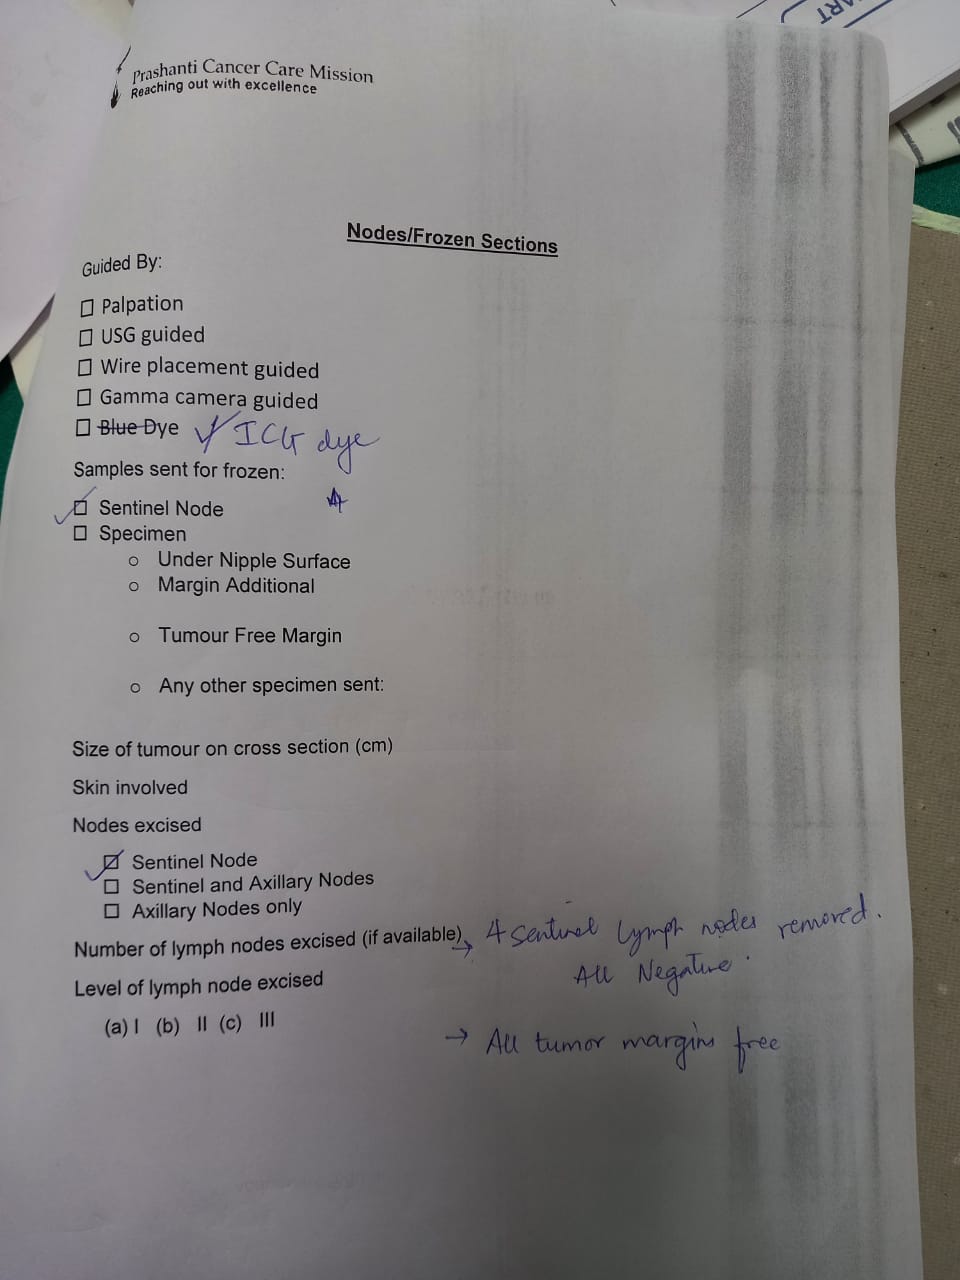 ART
Prashanti Cancer Care Mission
Reaching out with excellence
Nodes/Frozen Sections
Guided By:
☐ Palpation
☐ USG guided
☐ Wire placement guided
☐ Gamma camera guided
☐ Blue Dye ✓ ICG dye
Samples sent for frozen:
☑ Sentinel Node
☐ Specimen
o Under Nipple Surface
o Margin Additional
o Tumour Free Margin
o Any other specimen sent:
Size of tumour on cross section (cm)
Skin involved
Nodes excised
☑ Sentinel Node
☐ Sentinel and Axillary Nodes
☐ Axillary Nodes only
Number of lymph nodes excised (if available) → 4 Sentinel lymph nodes removed.
All Negative.
Level of lymph node excised
(a) I (b) II (c) III
→ All tumor margins free